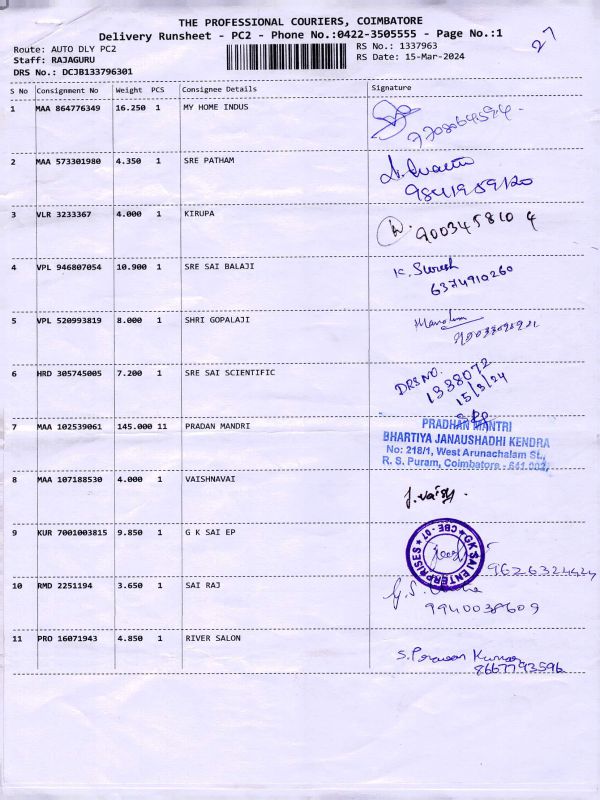 THE PROFESSIONAL COURIERS, COIMBATORE
Delivery Runsheet - PC2 - Phone No.:0422-3505555 - Page No.:1
27
Route: AUTO DLY PC2
RS No.: 1337963
Staff: RAJAGURU
RS Date: 15-Mar-2024
DRS No.: DCJB133796301
S No Consignment No Weight PCS Consignee Details Signature
1 MAA 864776349 16.250 1 MY HOME INDUS
2 MAA 573301980 4.350 1 SRE PATHAM
9841959120
3 VLR 3233367 4.000 1 KIRUPA
9003458104
4 VPL 946807054 10.900 1 SRE SAI BALAJI
K. Suresh
6374910260
5 VPL 520993819 8.000 1 SHRI GOPALAJI
6 HRD 305745005 7.200 1 SRE SAI SCIENTIFIC
DRS NO.
1338072
15/3/24
7 MAA 102539061 145.000 11 PRADAN MANDRI
PRADHAN MANTRI
BHARTIYA JANAUSHADHI KENDRA
No: 218/1, West Arunachalam St.,
R. S. Puram, Coimbatore - 641 002.
8 MAA 107188530 4.000 1 VAISHNAVAI
J. Vaisy.
9 KUR 7001003815 9.850 1 G K SAI EP
GK SAI ENTERPRISES
CBE - 07
9626324424
10 RMD 2251194 3.650 1 SAI RAJ
9940038609
11 PRO 16071943 4.850 1 RIVER SALON
S. Praveen Kumar
8667793596